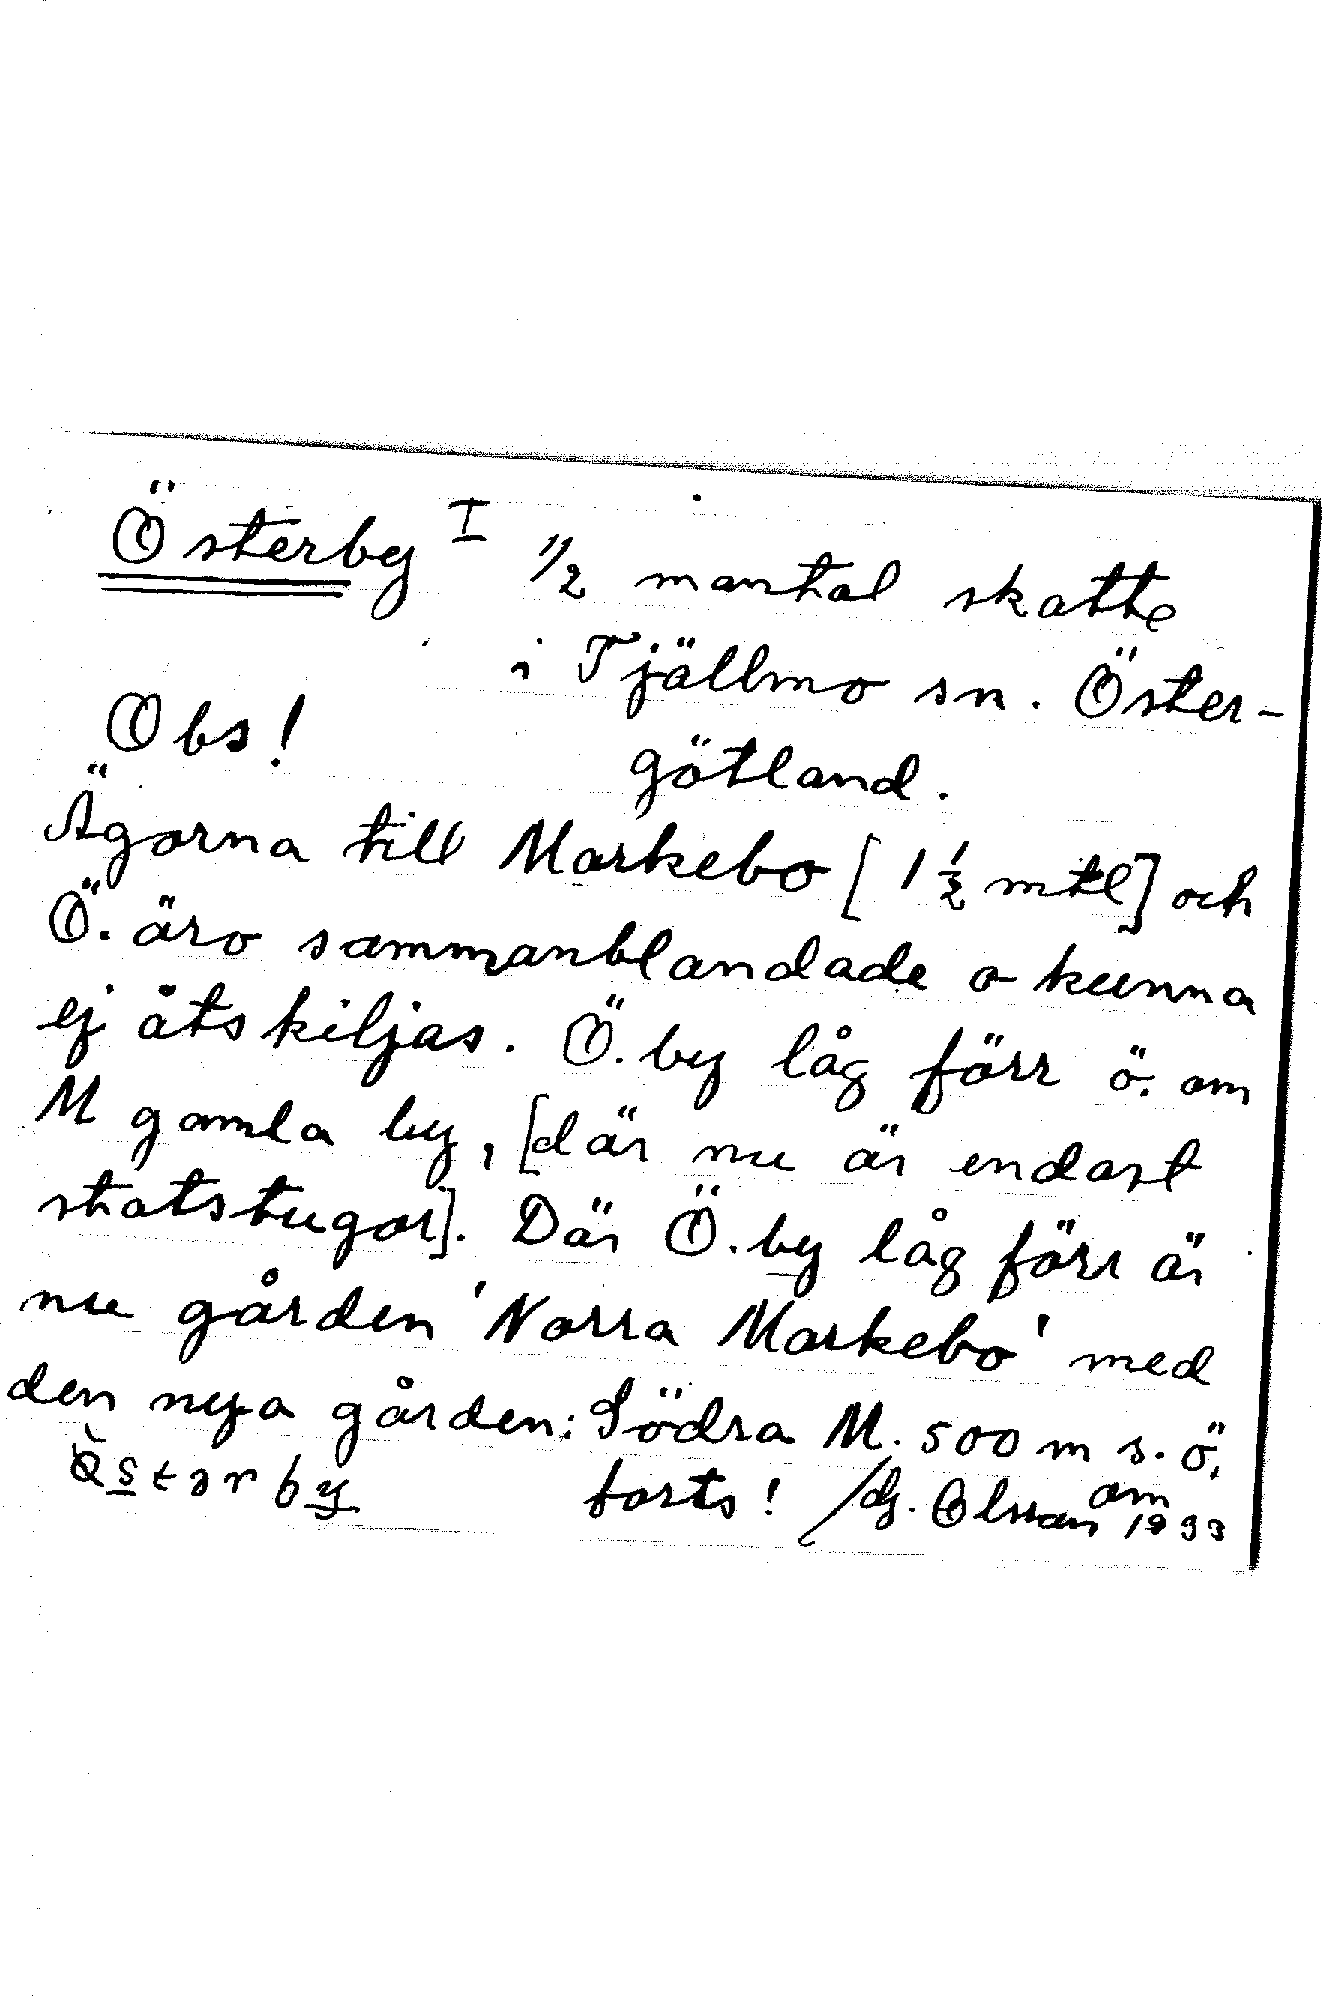 Österby I 1/2 mantal skatte
i Tjällmo sn. Öster-
Obs! götland.
Ägorna till Markebo [1 1/2 mtl] och
Ö. äro sammanblandade o kunna
ej åtskiljas. Ö.by låg förr ö. om
M gamla by, [där nu är endast
statstugor]. Där Ö.by låg förr är
nu gården 'Norra Markebo' med
den nya gården: Södra M. 500 m s.ö.
om
forts! /Hj. Olsson 1933